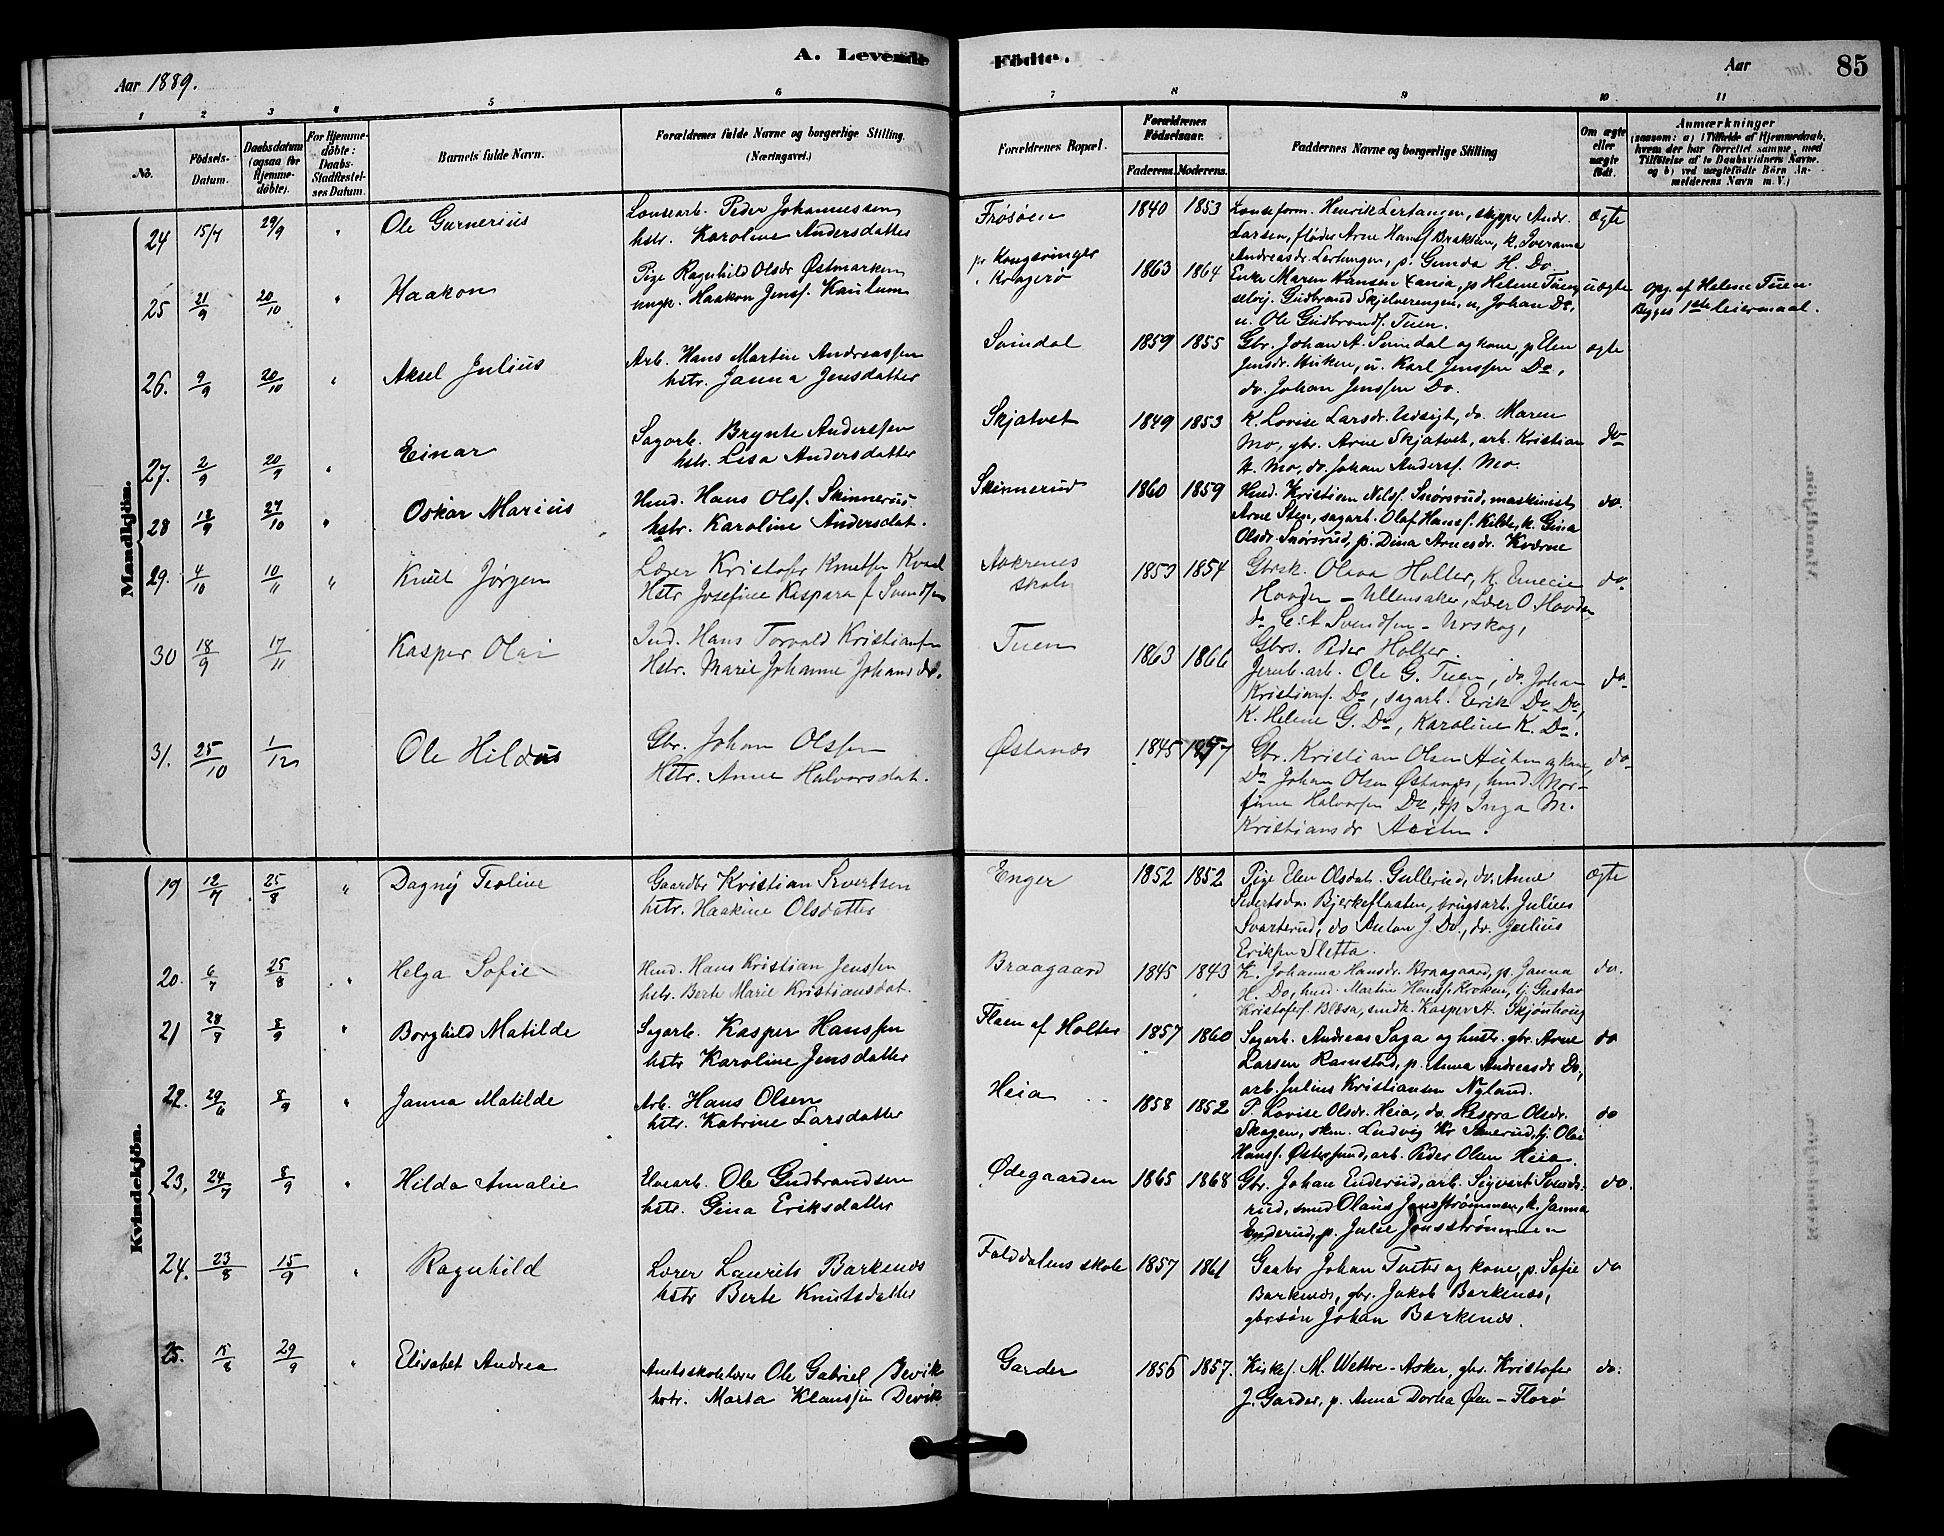 A. Levende Födte.
Aar 1889.
Aar
85
1 2 3 4 5 6 7 8 9 10 11
No.
Födsels-Datum.
Daabsdatum (ogsaa for Hjemme-döbte).
For Hjemme-döbte: Daabs-Stadfæstel-ses Datum.
Barnets fulde Navn.
Forældrenes fulde Navne og borgerlige Stilling. (Næringsvei.)
Forældrenes Bopæl.
Forældrenes Födselsaar.
Faderens. Moderens.
Faddernes Navne og borgerlige Stilling
Om ægte eller uægte födt.
Anmærkninger
(saasom: a) i Tilfælde af Hjemmedaab, hvem der har forrettet samme, med Tilföielse af to Daabsvidners Navne. og b) ved uægtefödte Börn An-melderens Navn m. V.)
Mandkjön.
24 15/7 29/9 " Ole Gunnerius
Lonsearb. Peder Johannessen
hstr. Karoline Andersdatter
Frøsøen 1840 1853
Lonseform. Henrik Lertangen, skipper Andr.
Larsen, fløder Arne Hansf. Brakken, k. Iverama
Andreasdr. Lertangen, p. Gunda H. Do.
ægte
25 21/9 20/10 " Haakon
Pige Ragnhild Olsdr Østmarken
ungk. Haakon Jensf. Kaulum
pr Kongsvinger
Kragerø 1863 1864
Enke Maren Hansen Xania, p Helene Tuen
selvej. Gudbrand Skjelverengen, u. Johan Do,
u. Ole Gudbrandf. Tuen.
uægte
Opg. af Helene Tuen.
Begges 1ste leiermaal.
26. 9/9 20/10 " Aksel Julius
Arb. Hans Martin Andreassen
hstr. Janna Jensdatter
Svindal 1859 1855
Gbr. Johan A. Svindal og kone, p. Elen
Jensdr. Husken, u. Karl Jenssen Do,
do. Johan Jenssen Do.
ægte
27. 2/9 20/9 " Einar
Sagarb. Brynte Anderssen
hstr. Lisa Andersdatter
Skjatvet 1849 1853
K. Lovise Larsdr. Udsigt, do. Maren
Mo, gbr. Arne Skjatvet, arb. Kristian
A. Mo, do. Johan Andersf. Mo.
do
28 18/9 27/10 " Oskar Marius
Hmd. Hans Olsf. Skinnerud
hstr. Karoline Andersdat.
Skinnerud 1860 1859
Hmd. Kristian Nilsf. Snørsrud, maskinist
Arne Sten, sagarb. Olaf Hansf. Kilde, k. Gina
Olsdr. Snørsrud, p. Dina Arnesdr. Kværne
do.
29. 4/10 10/11 " Knut Jørgen
Lærer Kristofer Knutsen Kvaal
Hstr Josefine Kaspara f Svendsen
Aakrenes
skole 1853 1854
Gbrsk. Olava Holter, K. Emecie
Hovden - Ullensaker, Lærer O Hovden
do C. A Svendsen - Urskog,
do
30 18/9 17/11 Kasper Olai
Ind. Hans Torvald Kristiansen
Hstr. Marie Johanne Johansdr.
Tuen 1863 1866
Gbrs. Peder Holter.
Jernb.arb. Ole G. Tuen, do. Johan
Kristiansf. Do, sagarb. Erik Do Do,
K. Helene G. Do, Karoline K. Do.
do
31. 25/10 1/12 Ole Hildus
Gbr. Johan Olssen
Hstr. Anne Halvorsdat.
Østanes 1845 1857
Gbr. Kristian Olsen Austen og kone,
Do Johan Olsen Østanes, hmd. Mor-
tinus Halvorsen Do, p Inga M.
Kristiansdr Austen.
do
Kvindekjön.
19 12/7 25/8 " Dagny Teoline
Gaardbr Kristian Sivertsen
hstr. Haakine Olsdatter
Enger 1852 1852
Pige Elen Olsdat. Gullerud, do. Anne
Sivertsdr. Bjerkeflaaten, brugsarb. Julius
Svarterud, do Anton J. Do, do. Julius
Eriksen Sletta.
ægte
20. 6/7 25/8 " Helga Sofie
Hmd. Hans Kristian Jenssen
hstr. Berte Marie Kristiansdat.
Braagaard 1845 1843
K. Johanna Hansdr. Braagaard, p. Janna
H. Do, hmd. Martin Hansf. Kroken, tj. Gustav
Kristofesf. Blæsa, smedk. Kasper A. Skjønhoug
do.
21 28/9 8/9 " Borghild Matilde
Sagarb. Kasper Hanssen
hstr Karoline Jensdatter
Flaen af Holter 1857 1860
Sagarb. Andreas Saga og hustr. gbr. Arne
Larsen Ramstad, p. Anna Andreasdr Do,
arb. Julius Kristiansen Nyland.
do
22. 29/6 8/9 " Janna Matilde
Arb. Hans Olsen
hstr. Katrine Larsdatter
Heia 1858 1852
P. Lovise Olsdr. Heia, do. Olsdr.
Skogen, skm. Ludvig Kr. tj. Olai
Hansf. Østersund, arb. Peder Olsen Heia.
do
23. 24/7 8/9 " Hilda Amalie
Elvearb. Ole Gudbrandsen
hstr. Gina Eriksdatter
Ødegaarden 1865 1868
Gbr. Johan Enderud, arb. Sigvart Svends-
rud, smed Olaus Jonsstrømmen, k. Janna
Enderud, p. Julie Jonsstrømmen
do.
24. 23/8 15/9 " Ragnhild
Lærer Laurits Barkenæs
hstr Berte Knutsdatter
Falldalens skole 1857 1861
Gaabr Johan Tuster og kone, p. Sofie
Barkenæs, gbr. Jakob Barkenæs,
gbrsøn Johan Barkenæs.
do
25. 15/8 29/9 " Elisabet Andrea
Amtsskolelærer Ole Gabriel Devik
hstr. Marta Klaussen Devik
Garder 1856 1857.
Kirkes. M. Wettre - Asker, gbr. Kristofer
J. Garder, p. Anna Dorthea Øen - Florø
do.